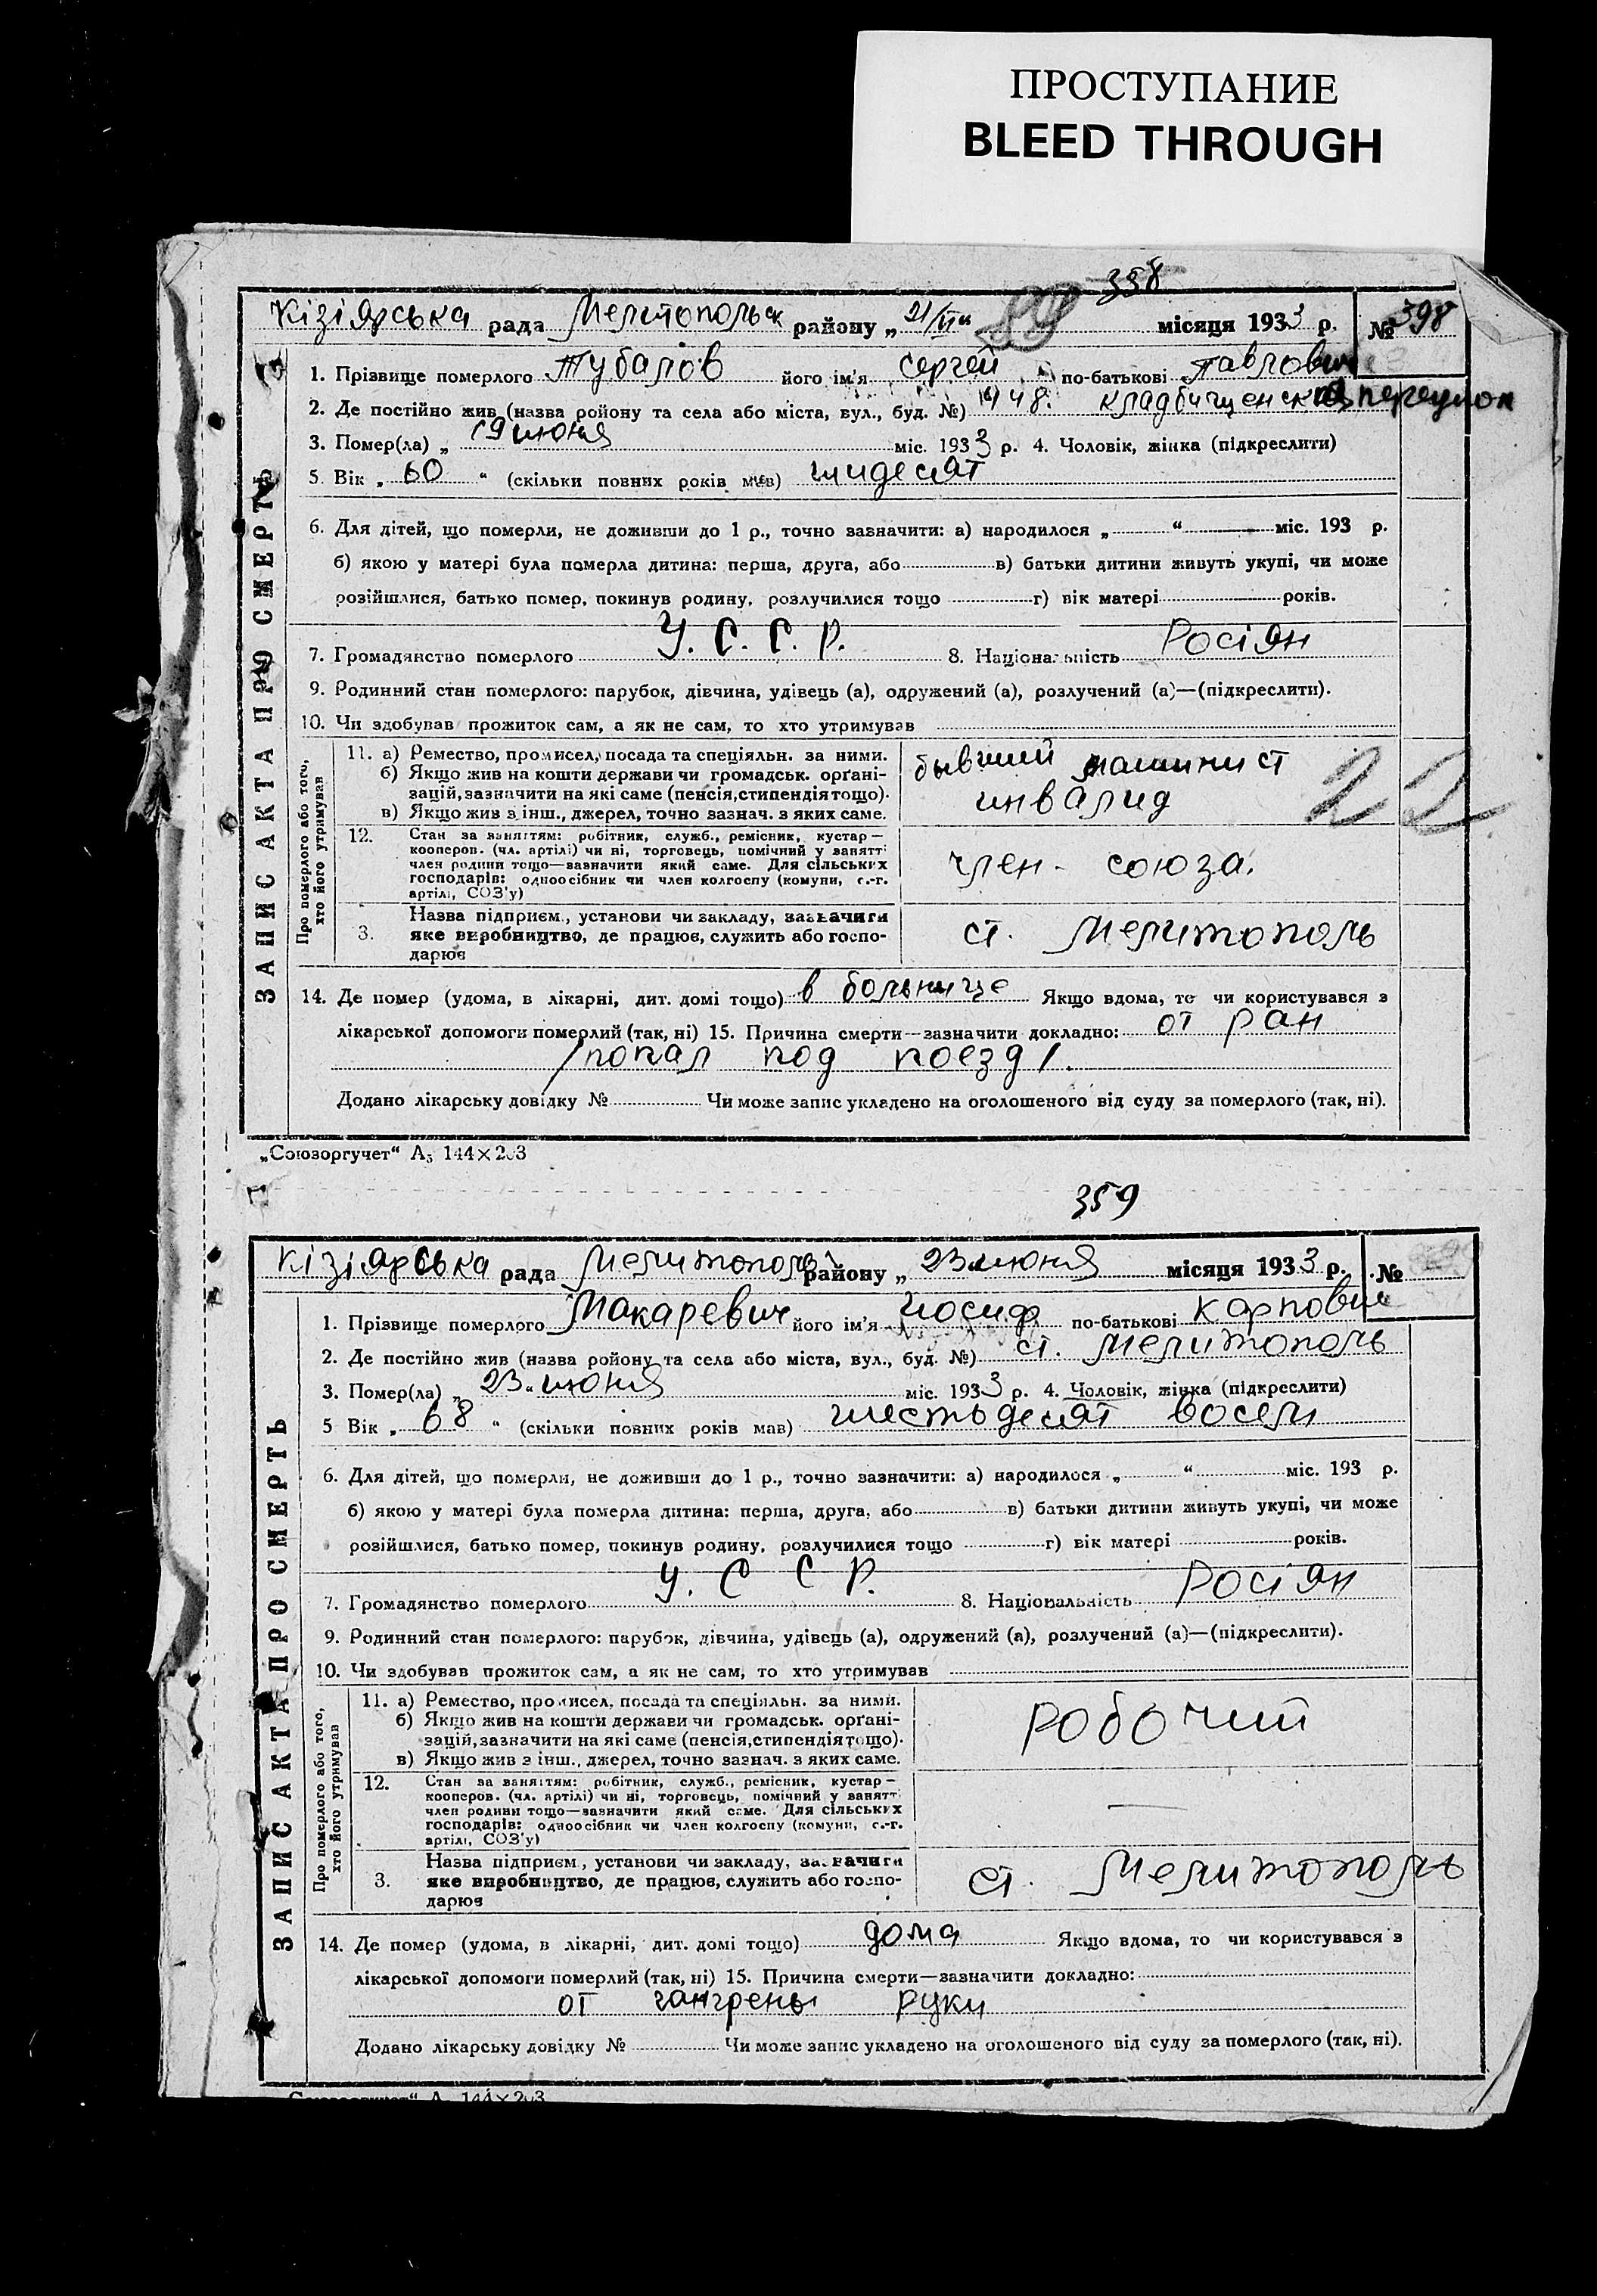 ПРОСТУПАНИЕ
BLEED THROUGH
358
Кізіярська рада Мелитопольск району „ 21/VI “ 89 місяця 1933 р. № 398
1. Прізвище померлого Тубалов його ім’я Сергей по-батькові Павлович
2. Де постійно жив (назва ройону та села або міста, вул., буд. №) 48. кладбищенский переулок
3. Помер(ла) „ 19 июня міс. 1933 р. 4. Чоловік, жінка (підкреслити)
5. Вік „ 60 “ (скільки повних років мав) шидесят
6. Для дітей, що померли, не доживши до 1 р., точно зазначити: а) народилося „ “ міс. 193 р.
б) якою у матері була померла дитина: перша, друга, або в) батьки дитини живуть укупі, чи може
розійшлися, батько помер, покинув родину, розлучилися тощо г) вік матері років.
7. Громадянство померлого У. С. С. Р. 8. Національність Росіян
9. Родинний стан померлого: парубок, дівчина, удівець (а), одружений (а), розлучений (а)—(підкреслити).
10. Чи здобував прожиток сам, а як не сам, то хто утримував
ЗАПИС АКТА ПРО СМЕРТЬ
Про померлого або того, хто його утримував
11. а) Ремество, промисел, посада та спеціяльн. за ними.
б) Якщо жив на кошти держави чи громадськ. орґані-
зацій, зазначити на які саме (пенсія, стипендія тощо).
в) Якщо жив з інш., джерел, точно зазнач. з яких саме.
бывший машинист
инвалид
22
12. Стан за заняттям: робітник, служб., ремісник, кустар —
кооперов. (чл. артілі) чи ні, торговець, помічний у занятт
член родини тощо—зазначити який саме. Для сільських
господарів: одноосібник чи член колгоспу (комуни, с.-г.
артілі, СОЗ’у)
член - союза.
3. Назва підприєм., установи чи закладу, зазначити
яке виробництво, де працює, служить або госпо-
дарює
ст. Мелитополь
14. Де помер (удома, в лікарні, дит. домі тощо) в больнице Якщо вдома, то чи користувався з
лікарської допомоги померлий (так, ні) 15. Причина смерти—зазначити докладно: от ран
/попал под поезд/.
Додано лікарську довідку № Чи може запис укладено на оголошеного від суду за померлого (так, ні).
„Союзоргучет“ А₅ 144×203
359
Кізіярська рада Мелитополь району „ 23 июня місяця 1933 р. №
1. Прізвище померлого Макаревич його ім’я Иосиф по-батькові Карпович
2. Де постійно жив (назва ройону та села або міста, вул., буд. №) ст. Мелитополь
3. Помер(ла) „ 23 “ июня міс. 1933 р. 4. Чоловік, жінка (підкреслити)
5 Вік „ 68 “ (скільки повних років мав) шестьдесят восем
6. Для дітей, що померли, не доживши до 1 р., точно зазначити: а) народилося „ “ міс. 193 р.
б) якою у матері була померла дитина: перша, друга, або в) батьки дитини живуть укупі, чи може
розійшлися, батько помер, покинув родину, розлучилися тощо г) вік матері років.
7. Громадянство померлого У. С С Р. 8. Національність Росіян
9. Родинний стан померлого: парубок, дівчина, удівець (а), одружений (а), розлучений (а)—(підкреслити).
10. Чи здобував прожиток сам, а як не сам, то хто утримував
ЗАПИС АКТА ПРО СМЕРТЬ
Про померлого або того, хто його утримував
11. а) Ремество, промисел, посада та спеціяльн. за ними.
б) Якщо жив на кошти держави чи громадськ. орґані-
зацій, зазначити на які саме (пенсія, стипендія тощо).
в) Якщо жив з інш., джерел, точно зазнач. з яких саме.
робочий
12. Стан за заняттям: робітник, служб., ремісник, кустар —
кооперов. (чл. артілі) чи ні, торговець, помічний у занятт
член родини тощо—зазначити який саме. Для сільських
господарів: одноосібник чи член колгоспу (комуни, с.-г.
артілі, СОЗ’у)
—
3. Назва підприєм., установи чи закладу, зазначити
яке виробництво, де працює, служить або госпо-
дарює
ст. Мелитополь
14. Де помер (удома, в лікарні, дит. домі тощо) дома Якщо вдома, то чи користувався з
лікарської допомоги померлий (так, ні) 15. Причина смерти—зазначити докладно:
от гангрены руки
Додано лікарську довідку № Чи може запис укладено на оголошеного від суду за померлого (так, ні).